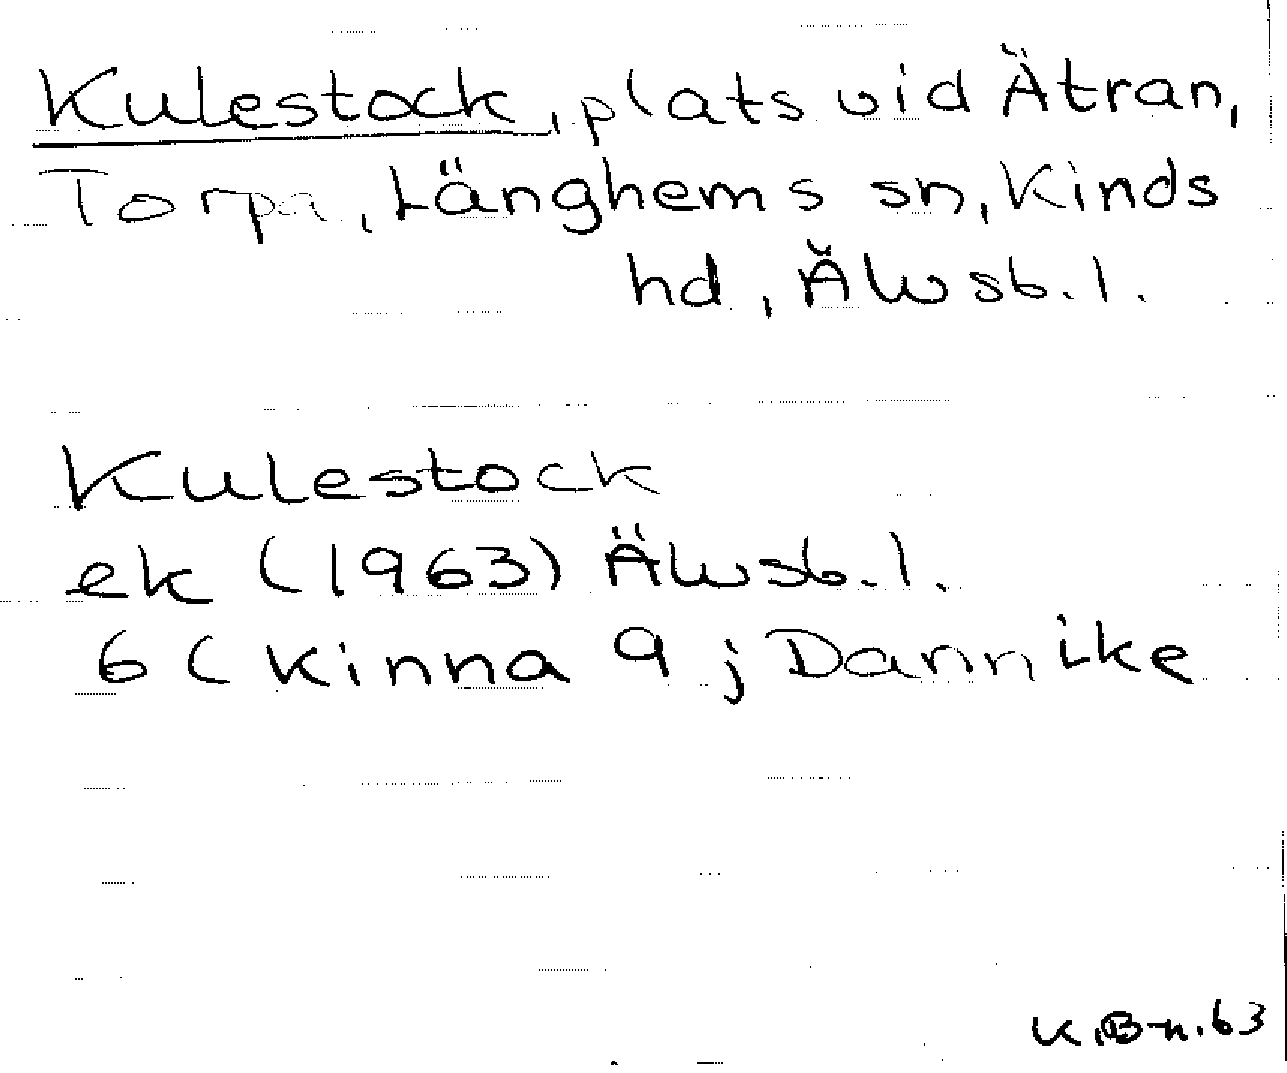 Kulestock, plats vid Ätran,
Torpa, Länghems sn, Kinds
hd, Älvsb. l.
Kulestock
ek (1963) Älvsb. l.
6 C Kinna 9 j Dannike
K.B-n. 63